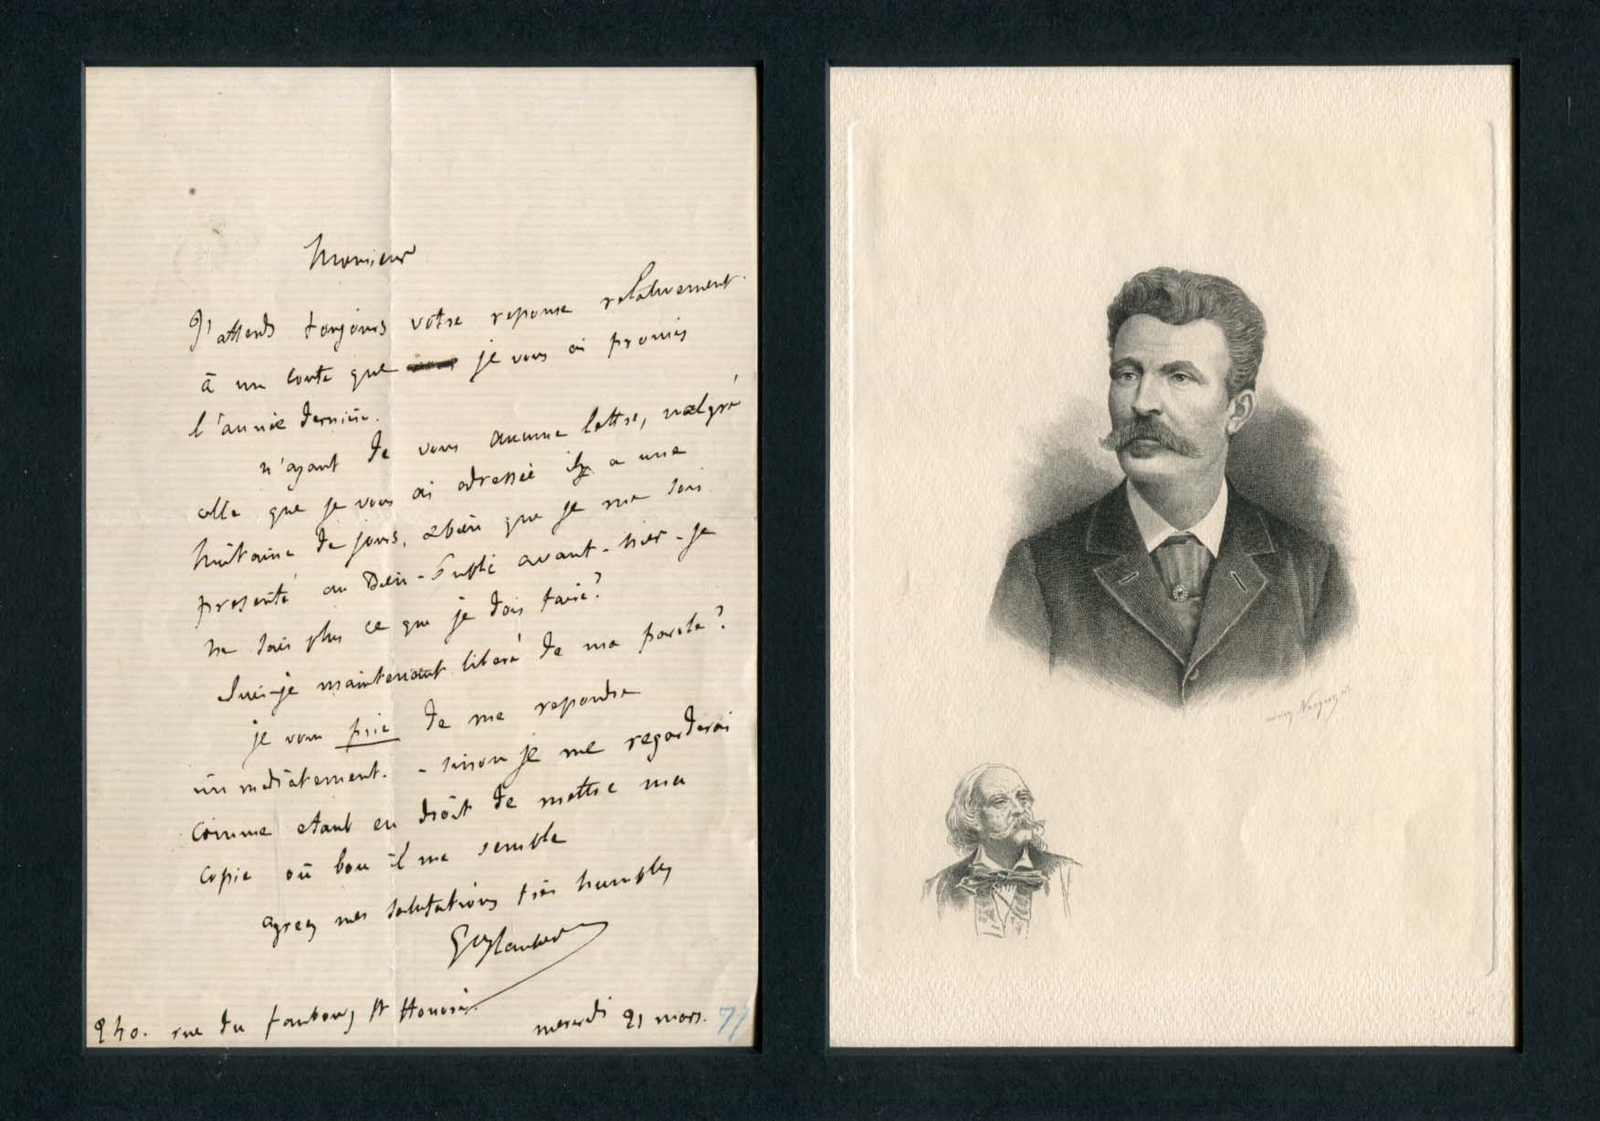 Monsieur
J'attends toujours votre reponse relativement
à un conte que je vous ai promis
l'année dernière.
n'ayant de vous aucune lettre, malgré
celle que je vous ai adressée il y a une
huitaine de jours, & bien que je me sois
presenté au Bien-Public avant-hier - je
ne sais plus ce que je dois faire?
Suis-je maintenant libéré de ma parole?
je vous prie de me repondre
immédiatement. - sinon je me regarderai
comme etant en droit de mettre ma
copie où bon il me semble
agreez mes salutations très humbles
Gve Flaubert
240. rue du faubourg St Honoré.
mercredi 21 mars. 77